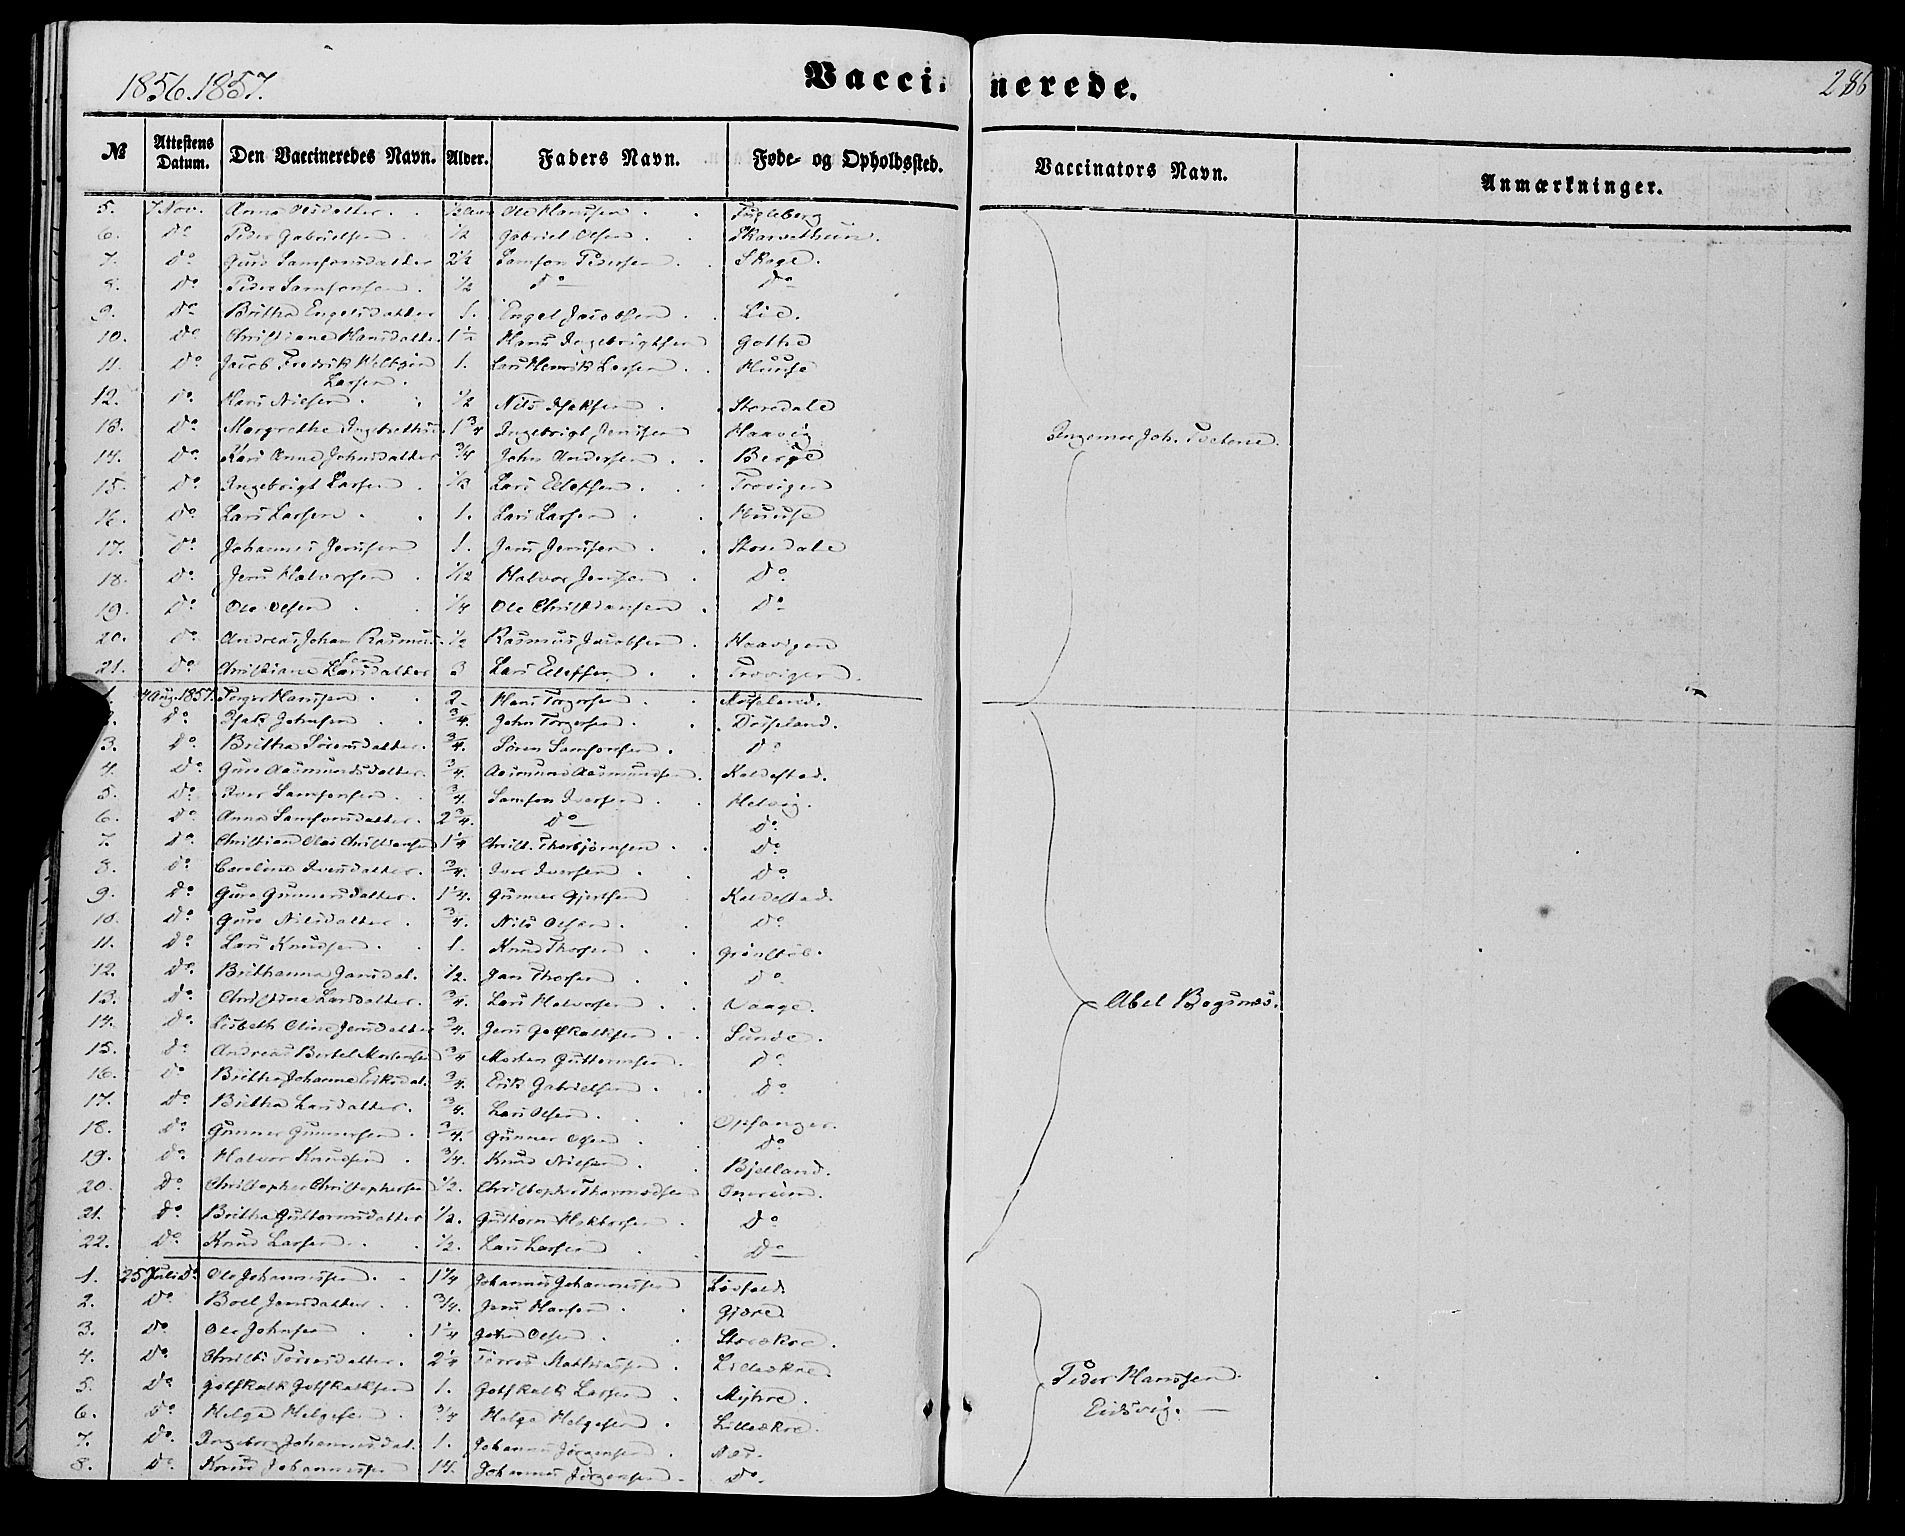 1856. 1857.
Vaccinerede.
286
№ Attestens Datum. Den Vaccineredes Navn. Alder. Faders Navn. Føde- og Opholdssted. Vaccinators Navn. Anmærkninger.
5. 7 Nov. Anna Olsdatter. Ole Hansen. Fugleberg
6. Do Peder Gabrielsen. 1/2 Gabriel Olsen.
7. Do Guro Samsonsdatter 2 1/2 Samson Pedersen. Skage.
8. Do Peder Samsonsen. 1/2 Do Do
9. Do Britha Engelsdatter 1. Engel Jacobsen. Lie.
10. Do Christiane Hansdatter 1 1/2 Hans Ingebrigtsen
11. Do Jacob Fredrik 1. Lars Henrik Larsen. Huuse
Larsen.
12. Do Hans Nielsen. 1/2 Nils Isaksen. Storedale
13. Do Margrethe 1 3/4 Ingebrigt Jensen Haavig
Ingemer Joh.
14. Do Kari Anna Johnsdatter 3/4 John Andersen. Berge
15. Do Ingebrigt Larsen. 1/3 Lars Elefsen. Trovigen
16. Do Lars Larsen. 1. Lars Larsen. Huuse
17. Do Johannes Jensen 1. Jens Jensen. Storedale
18. Do Jens Halvorsen. 1/12 Halvor Jensen. Do
19. Do Ole Olsen. 1/4 Ole Christiansen. Do
20. Do Andreas Johan Rasmus. 1/2 Rasmus Jacobsen. Haavigen
21. Do Christiane Larsdatter 3 Lars Elefsen. Trovigen.
1. 4 Aug. 1857. Torger Hansen. 2 Hans Torgersen.
Do Isak Johnsen. 3/4. John Torgersen.
3. Do Britha Sørensdatter. 3/4. Søren Samsonsen. Do
4. Do Guro Aasmundsdatter. 3/4. Aasmund Aasmundsen. Kaldestad.
5. Do Iver Samsonsen. 3/4. Samson Iversen. Helvig.
6. Do Anna Samsonsdatter. 2 3/4. Do Do
7. Do Christian Olai Christiansen 1 1/4 Christ. Thorbjørnsen. Do
8. Do Caroline Iversdatter. 3/4. Iver Iversen. Do
9. Do Guro Gunnersdatter. 1 1/4. Gunner Gjertsen Kaldestad.
10. Do Guro Nilsdatter. 3/4. Nils Olsen. Do
11. Do Lars Knudsen. 1. Knud Thorsen.
12. Do Brithanna Jansdat. 1/2. Jan Thorsen. Do
13. Do Christine Larsdatter. 3/4. Lars Halvorsen. Vaage.
Abel Bogsnæs.
14. Do Lisbeth Oline Jensdatter 3/4. Jens Gotskalksen. Sunde.
15. Do Andreas Bertel Mortensen 3/4 Morten Guttormsen. Do
16. Do Britha Johanne Eriksdat. 3/4. Erik Gabrielsen. Do
17. Do Britha Larsdatter. 3/4. Lars Olsen. Opsanger.
18. Do Gunner Gunnersen. 3/4. Gunner Olsen. Do
19. Do Halvor Knudsen. 3/4. Knud Nilsen. Bjelland.
20. Do Christopher Christophersen 1/2. Christopher Thormodsen
21. Do Britha Guttormsdatter 1/2. Guttorm Halvorsen. Do
22. Do Knud Larsen. 1/2. Lars Larsen. Do
1. 25 Juli Do Ole Johannessen. 1 1/4 Johannes Johannessen
2. Do Boel Jensdatter. 3/4. Jens Hansen. Gjære.
3. Do Ole Johnsen. 1 1/4 John Olsen. Storækre.
4. Do Christi Torresdatter. 2 1/4 Torres Mathiassen. Lilleækre.
Peder Hanssen
5. Do Gotskalk Gotskalksen 1. Gotskalk Larsen. Myhre.
Eidsvig.
6. Do Helge Helgesen. 3/4 Helge Helgesen. Lilleækre.
7. Do Ingeborg Johannesdat. 1. Johannes Jørgensen. Næs.
8. Do Knud Johannessen 14. Johannes Jørgensen. Do.